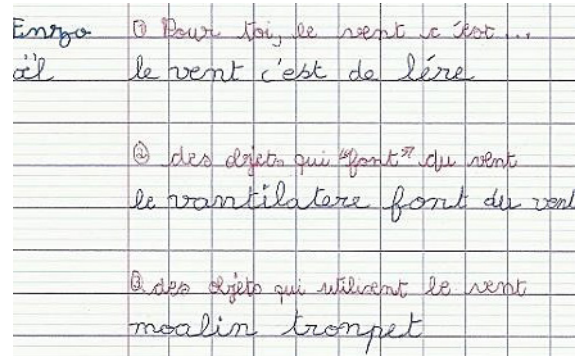 Enzo ① Pour toi, le vent c'est...
aël le vent c'est de lére
② des objets qui "font" du vent
le vantilatere font du vent
③ des objets qui utilisent le vent
moalin tronpet